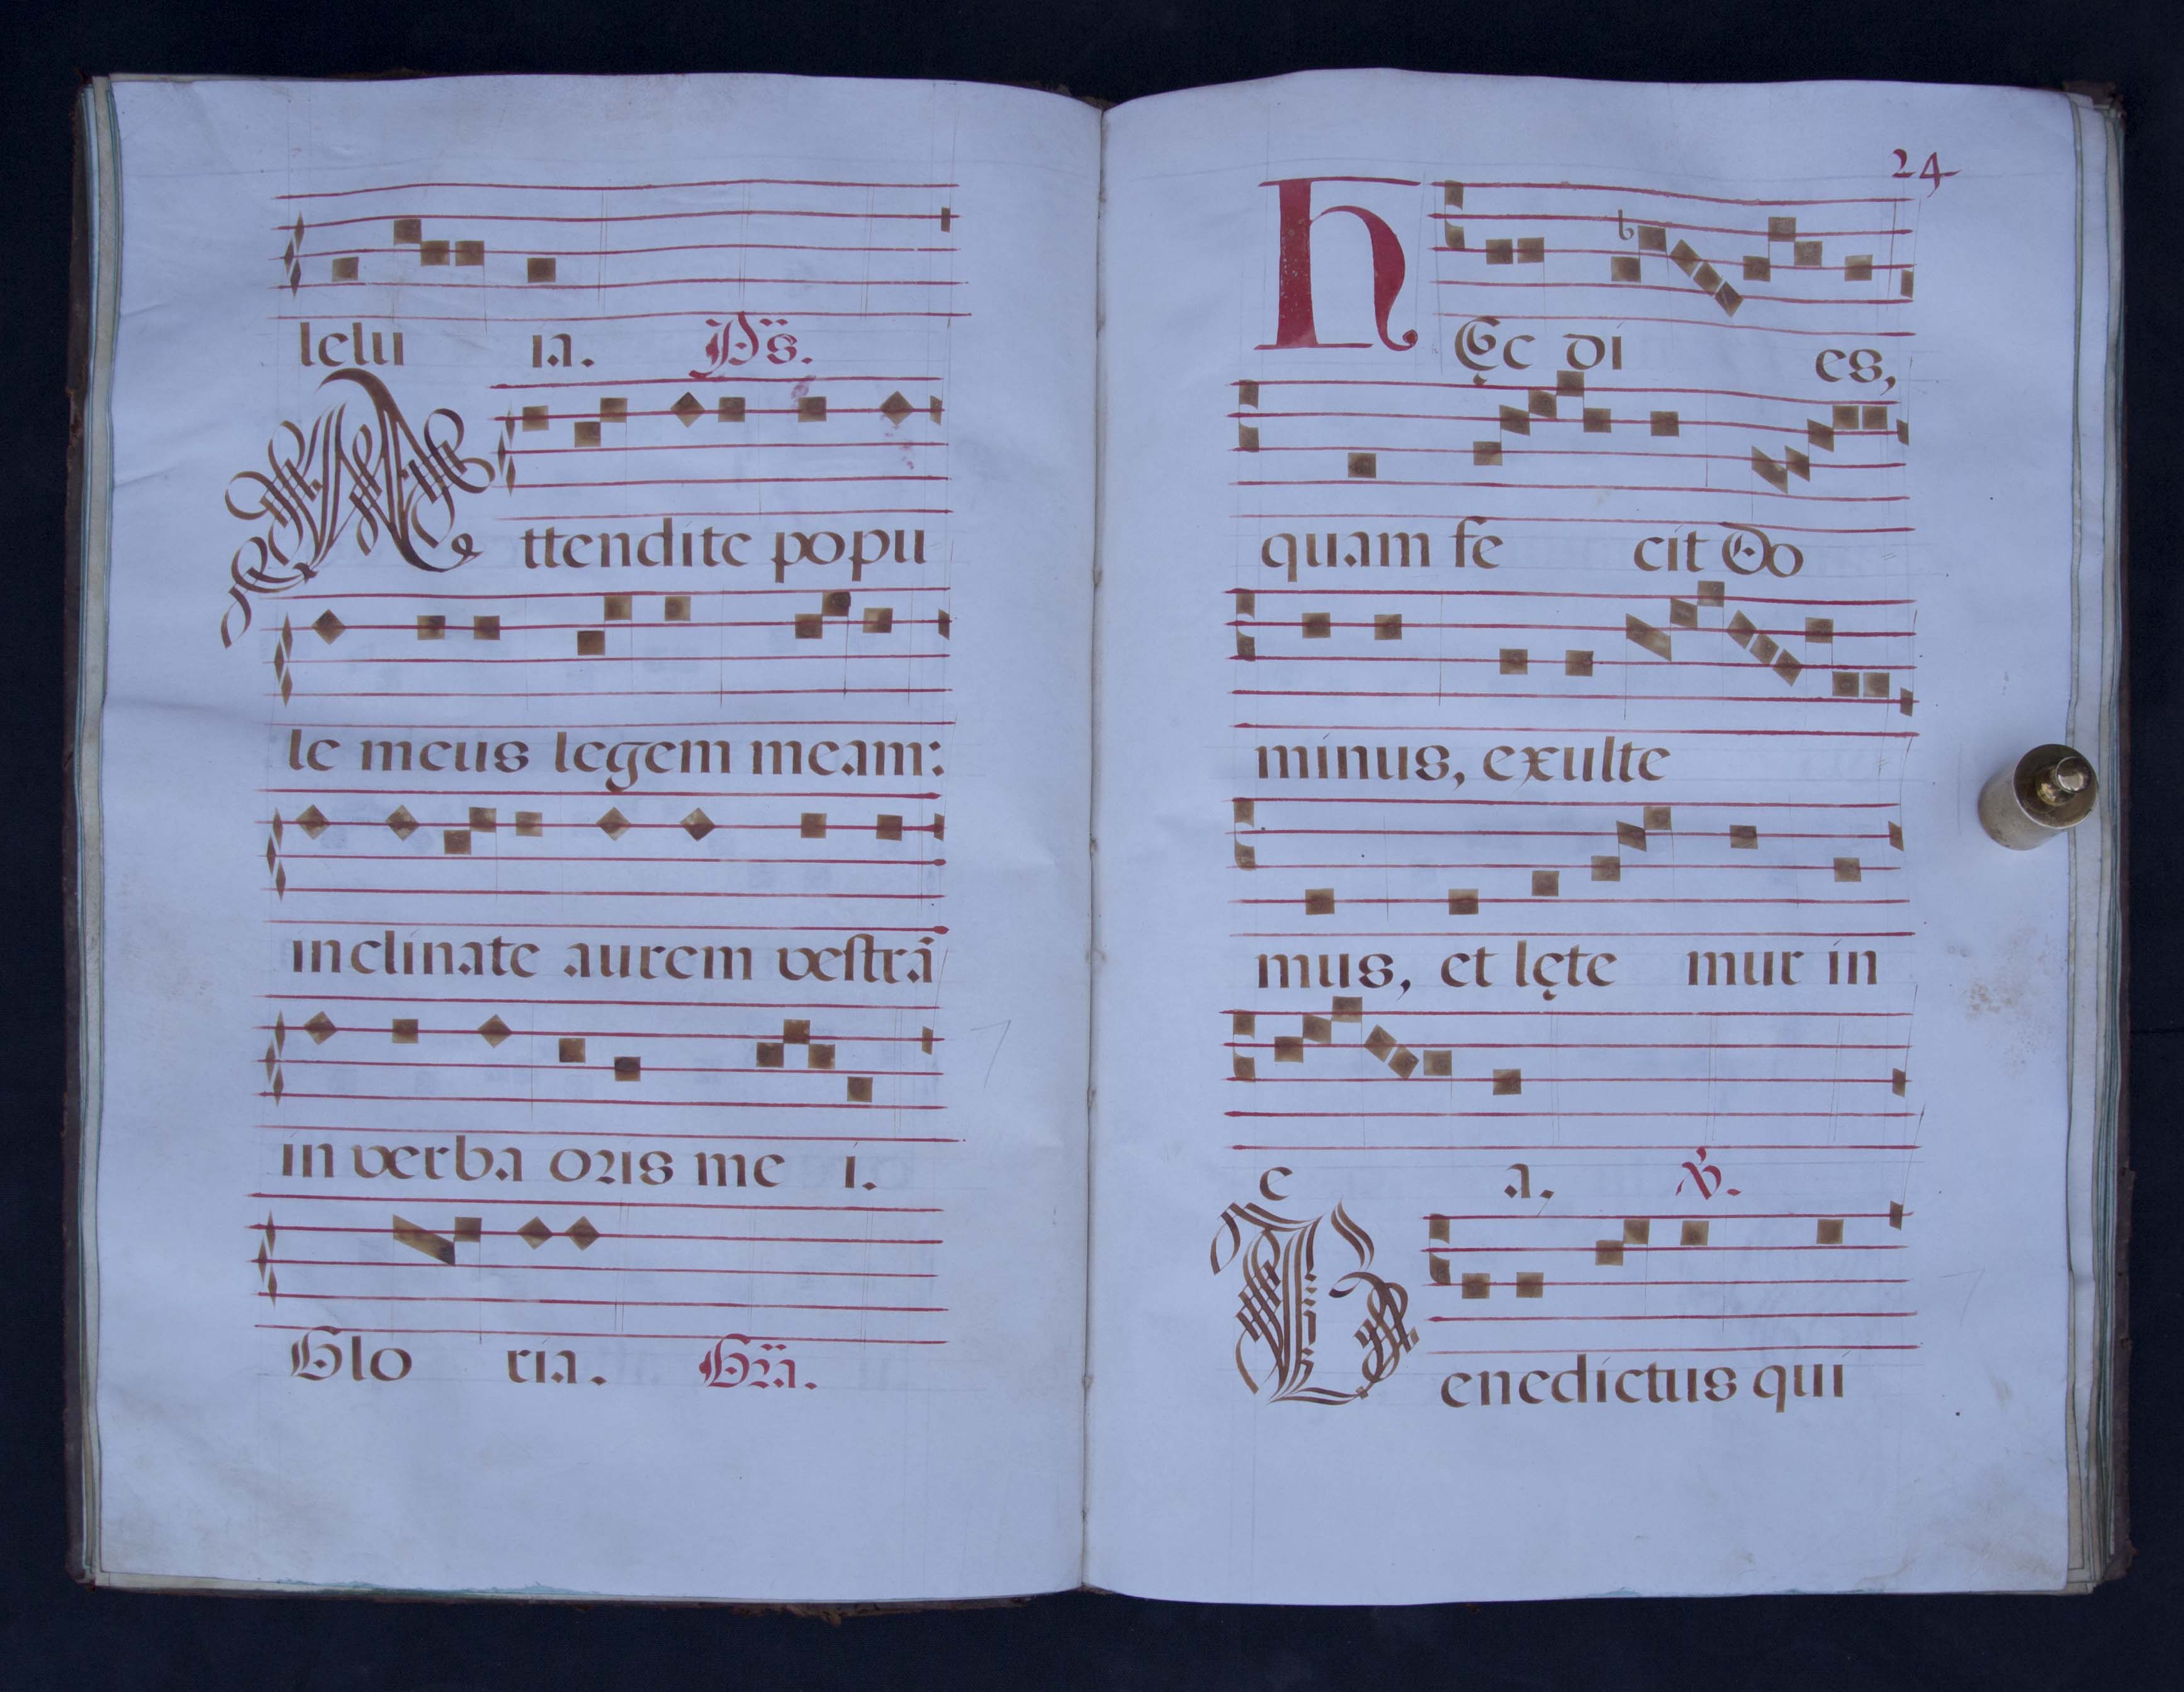 lelu ia. Ps.
Attendite popu
le meus legem meam:
inclinate aurem vestrã
in verba oris me i.
Glo ria. Gria.
24
hęc di es,
quam fe cit Do
minus, exulte
mus, et lęte mur in
e a. V.
Benedictus qui